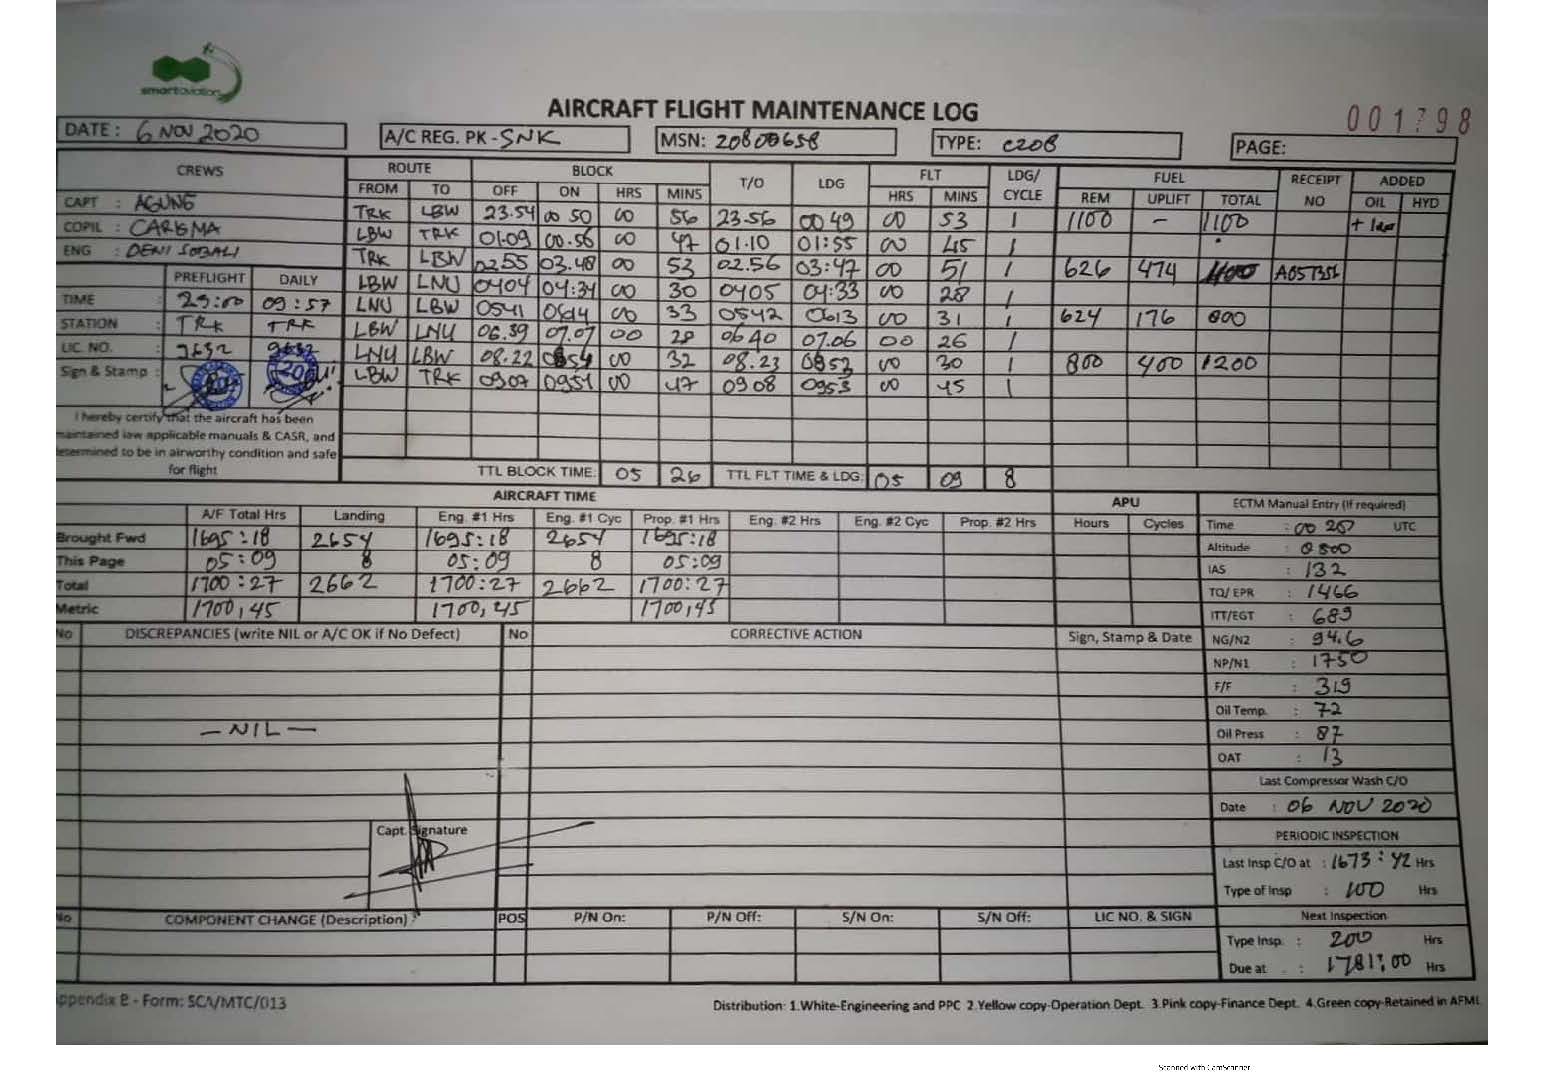 smartaviation
AIRCRAFT FLIGHT MAINTENANCE LOG
001798
DATE : 6 NOV 2020 A/C REG. PK - SNK MSN: 20800658 TYPE: C208 PAGE:
CREWS ROUTE BLOCK T/O LDG FLT LDG/ CYCLE FUEL RECEIPT NO ADDED
FROM TO OFF ON HRS MINS HRS MINS REM UPLIFT TOTAL OIL HYD
CAPT : AGUNG
COPIL : CARISMA
ENG : DENI SOBALI
TRK LBW 23.54 00 50 00 56 23.56 00 49 00 53 1 1100 - 1100
LBW TRK 01.09 00.56 00 47 01.10 01:55 00 45 1
TRK LBW 02 55 03.48 00 53 02.56 03:47 00 51 1 626 474 1100
LBW LNU 0404 04:34 00 30 0405 04:33 00 28 1
LNU LBW 0541 0614 00 33 0542 0613 00 31 1 624 176 800
LBW LNU 06.39 07.07 00 28 0640 07.06 00 26 1
LNU LBW 08.22 0854 00 32 08.23 0853 00 30 1 800 400 1200
LBW TRK 0907 0954 00 47 0908 0953 00 45 1
PREFLIGHT DAILY
TIME : 23:00 09:57
STATION : TRK TRK
LIC. NO. : 9632 9632
Sign & Stamp :
I hereby certify that the aircraft has been
maintained iaw applicable manuals & CASR, and
determined to be in airworthy condition and safe
for flight
TTL BLOCK TIME: 05 26 TTL FLT TIME & LDG: 05 09 8
AIRCRAFT TIME APU ECTM Manual Entry (if required)
A/F Total Hrs Landing Eng. #1 Hrs Eng. #1 Cyc Prop. #1 Hrs Eng. #2 Hrs Eng. #2 Cyc Prop. #2 Hrs Hours Cycles
Brought Fwd 1695:18 2654 1695:18 2654 1695:18
This Page 05:09 8 05:09 8 05:09
Total 1700:27 2662 1700:27 2662 1700:27
Metric 1700,45 1700,45 1700,45
Time : UTC
Altitude :
IAS : 132
TQ/ EPR : 1466
ITT/EGT : 689
NG/N2 : 94.6
NP/N1 : 1750
F/F : 319
Oil Temp. : 72
Oil Press : 87
OAT : 13
No DISCREPANCIES (write NIL or A/C OK if No Defect) No CORRECTIVE ACTION Sign, Stamp & Date
— NIL —
Capt. Signature
Last Compressor Wash C/O
Date : 06 NOV 2020
PERIODIC INSPECTION
Last Insp C/O at : 1673:42 Hrs
Type of Insp : 100 Hrs
Next Inspection
Type Insp. : 200 Hrs
Due at : 1781:00 Hrs
No COMPONENT CHANGE (Description) POS P/N On: P/N Off: S/N On: S/N Off: LIC NO. & SIGN
Appendix B - Form: SCA/MTC/013
Distribution: 1.White-Engineering and PPC 2.Yellow copy-Operation Dept. 3.Pink copy-Finance Dept. 4.Green copy-Retained in AFML
Scanned with CamScanner